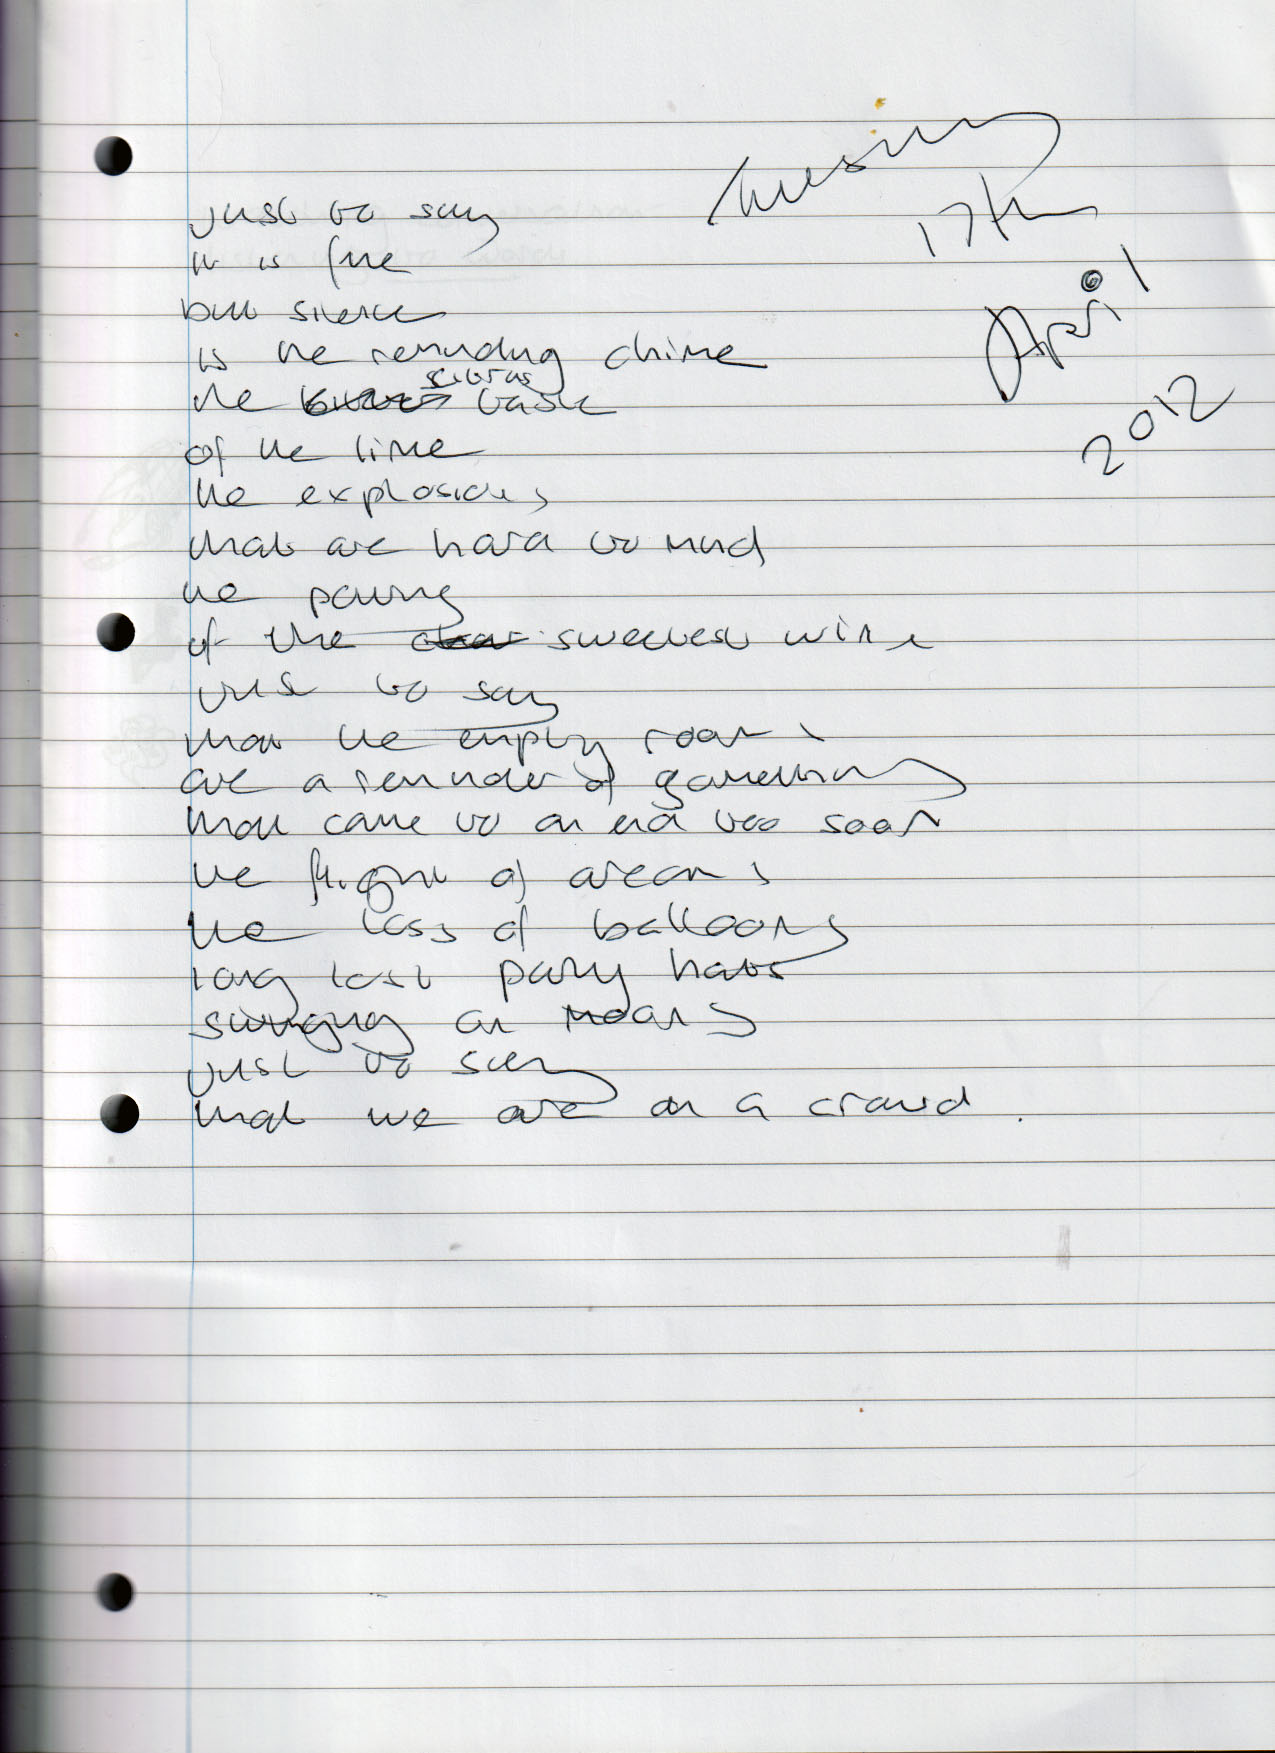 Tuesday
17th
April
2012
just to say
it is fine
but silence
is the reminding chime
the citrus taste
of the lime
the explosions
that are hard to mind
the pouring
of the sweetest wine
just to say
that the empty rooms
are a reminder of something
that came to an end too soon
the flight of dreams
the loss of balloons
long lost party hats
swinging on moons
just to say
that we are on a cloud.